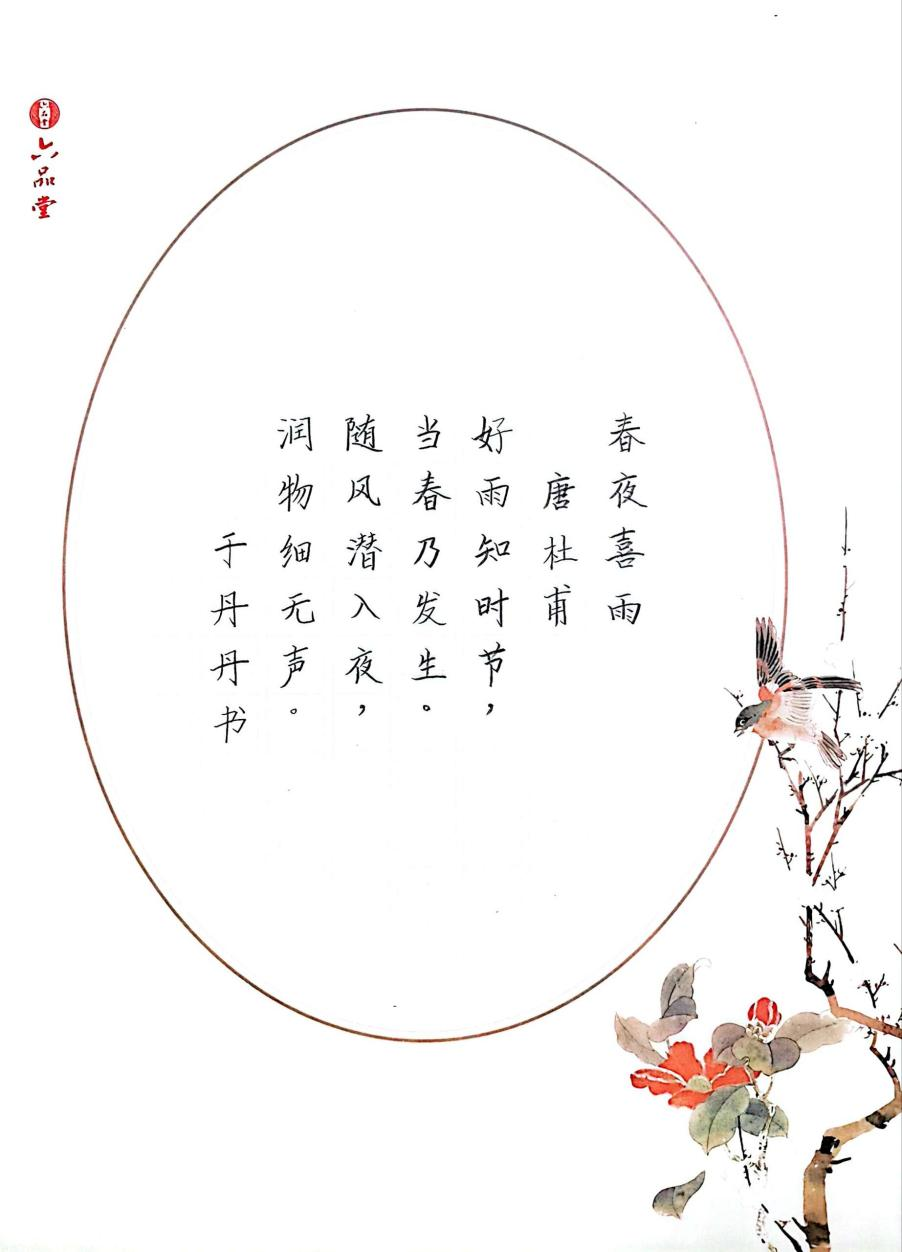 春夜喜雨
唐杜甫
好雨知时节，
当春乃发生。
随风潜入夜，
润物细无声。
于丹丹书
六品堂
六品堂